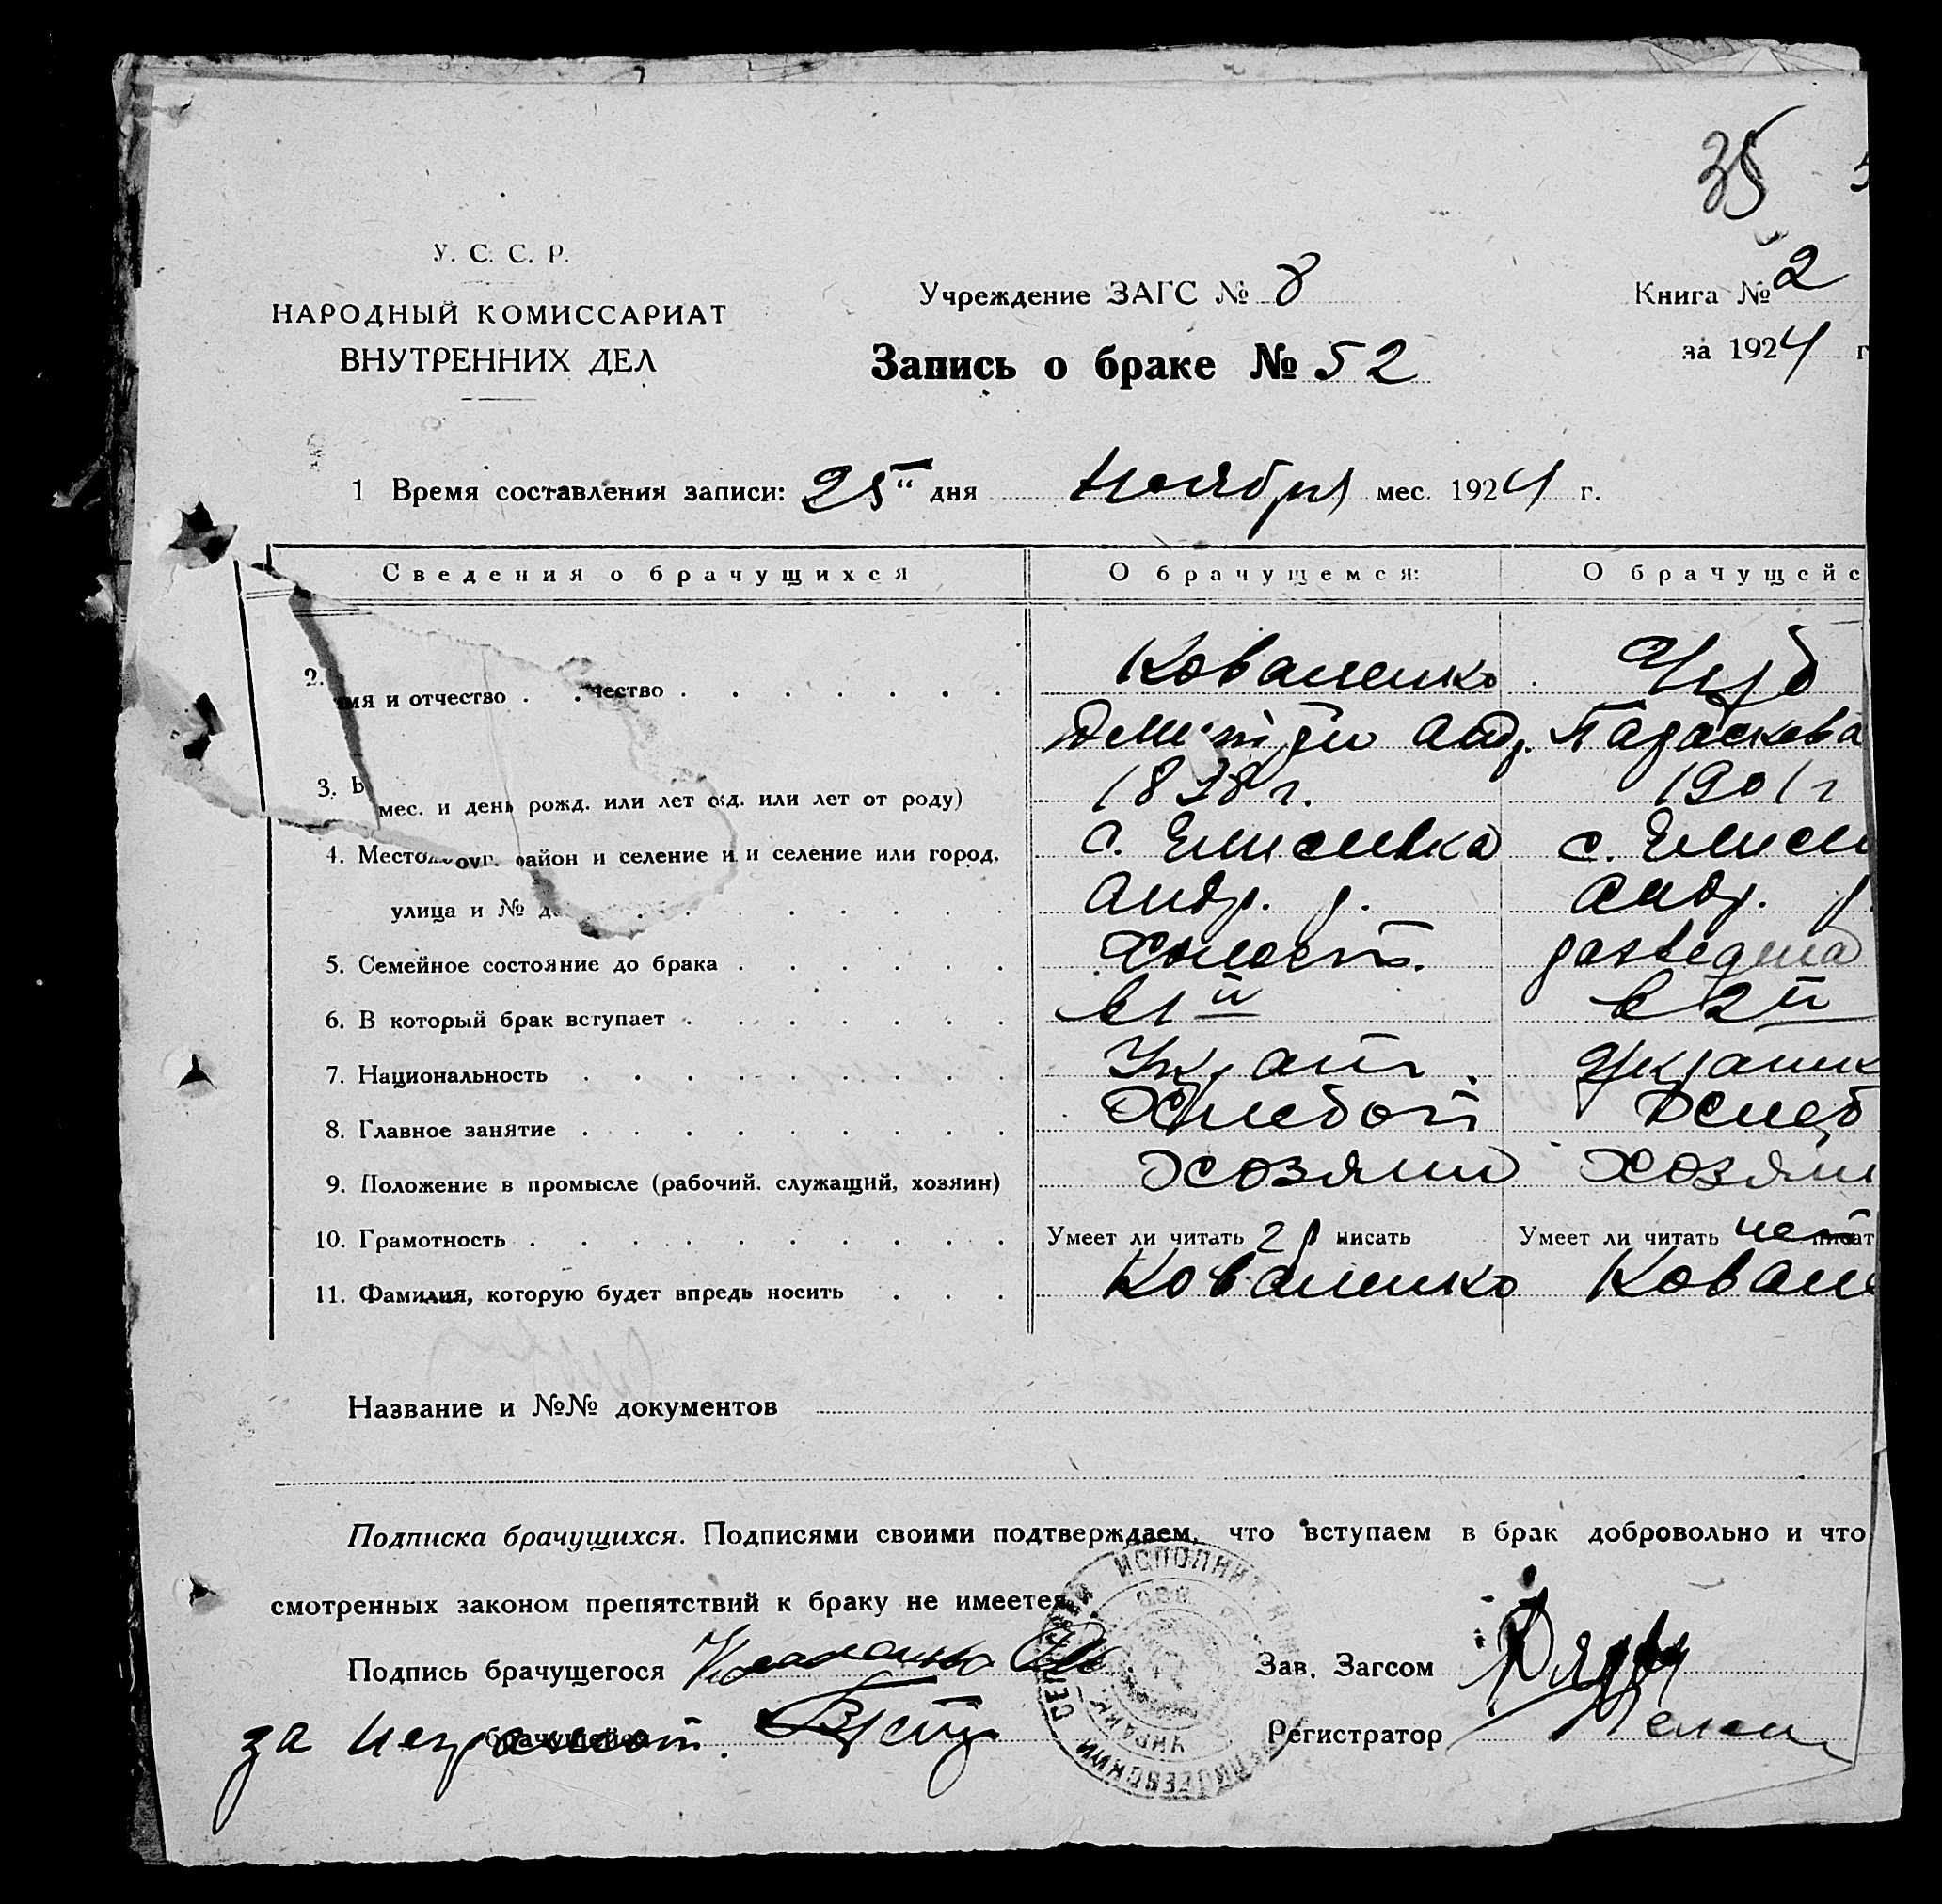 35
У. С. С. Р.
НАРОДНЫЙ КОМИССАРИАТ
ВНУТРЕННИХ ДЕЛ
Учреждение ЗАГС № 8
Книга № 2
Запись о браке № 52
за 1924 г
1 Время составления записи: 25го дня Ноября мес. 1924 г.
Сведения о брачущихся О брачущемся: О брачущейс
2. имя и отчество . . чество . . . . . . . Коваленко Чуб
Андр. Параскева
3. В 1878 г. 1901 г
мес. и день рожд. или лет жд. или лет от роду)
4. Место окр. район и селение и и селение или город, с. Елисеевка с. Елисе
улица и № д Андр. р. Андр. р.
5. Семейное состояние до брака . . . . . . холост. разведена
6. В который брак вступает . . . . . . . в 1й в 2й
7. Национальность . . . . . . . . . Украин. Украинк
8. Главное занятие . . . . . . . . . Хлебоп Хлеб
9. Положение в промысле (рабочий. служащий, хозяин) хозяин хозяи
10. Грамотность . . . . . . . . . . Умеет ли читать гр писать Умеет ли читать нет писат
11. Фамилия, которую будет впредь носить . . . Коваленко Ковале
Название и №№ документов
Подписка брачущихся. Подписями своими подтверждаем, что вступаем в брак добровольно и что
смотренных законом препятствий к браку не имеется.
Подпись брачущегося Коваленко Зав. Загсом
за неграмот. брачущейся Регистратор
СЕЛЬСКИЙ ИСПОЛНИТ.